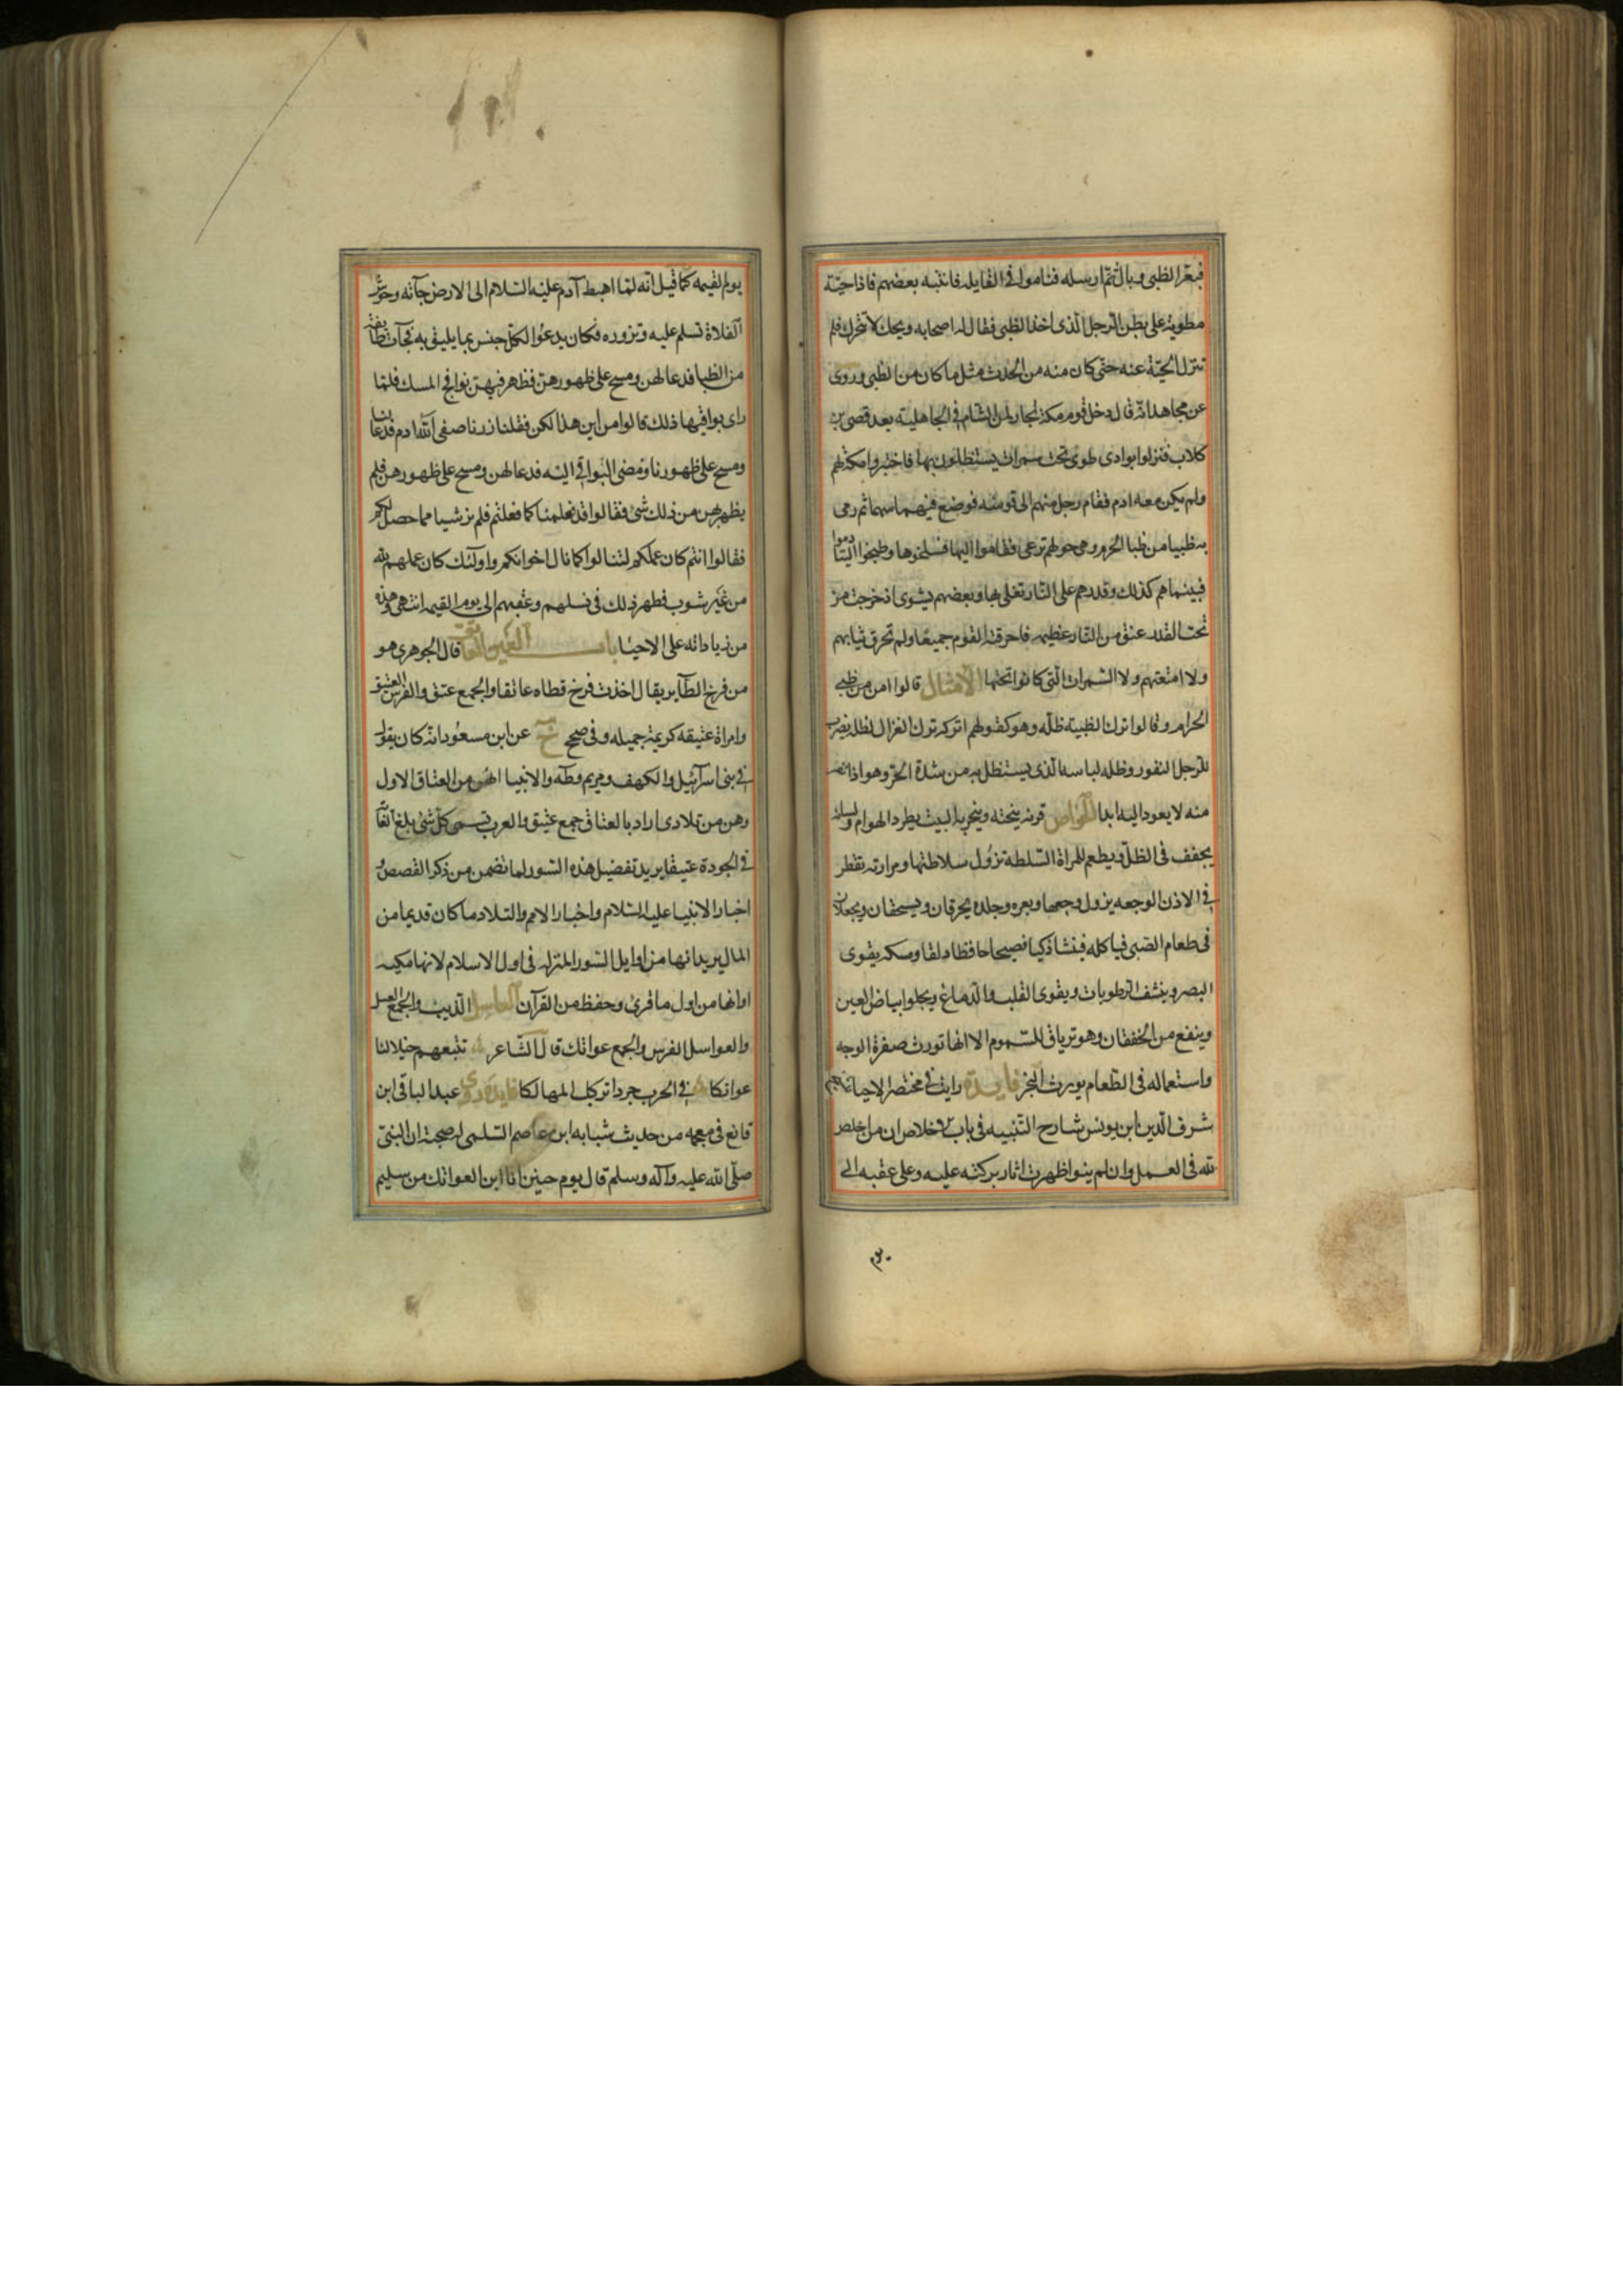 فبعر الظبى وبال ثم ارسله فناموا فى القايله فانتبه بعضهم فاذا حيّة
مطوية على بطن الرجل الذى اخذ الظبى فقال له اصحابه ويحك لا تتحرك فلم
تنزل الحيّة عنه حتى كان منه من الحدث مثل ما كان من الظبى وروى
عن مجاهد انه قال دخل قوم مكة تجار من الشام فى الجاهلية بعد قصى بن
كلاب فنزلوا بوادى طوى تحت سمرات يستظلون بها فاختبزوا ملة لهم
ولم يكن معه ادم فقام رجل منهم الى قوسه فوضع فيهما سهما ثم رمى
به ظبيا من ظبا الحرم وهى حولهم ترعى فقاموا اليها فسلخوها وطبخوا ليتادموا
فبينما هم كذلك وقدرهم على النار تغلى بها وبعضهم يشوى اذ خرجت من
تحت القدر عنق من النار عظيمه فاحرقت القوم جميعا ولم تحرق ثيابهم
ولا امتعتهم ولا السمرات التى كانوا تحتها الامثال قالوا امن من ظبى
الحرام وقالوا ترك الظبية ظله وهو كقولهم اتركه ترك الغزال لظله يضرب
للرجل النفور وظله لباسه الذى يستظل به من شدة الحرّ وهو اذا نفر
منه لا يعود اليه ابدا الخواص قرنه ينحته ويبخر به البيت يطرد الهوام ولسانه
يجفف فى الظل ويطعم للمراة السلطة تزول سلاطتها ومرارته تقطر
فى الاذن الوجعه يزول وجعها وبعره وجلده يحرقان ويسحقان ويجعلان
فى طعام الصبى فياكله فينشا ذكيا فصيحا حافظا دلقا ومسكه يقوى
البصر وينشف الرطوبات ويقوى القلب والدماغ ويجلو ابياض العين
وينفع من الخفقان وهو ترياق للسموم الا انها تورث صفرة الوجه
واستعماله فى الطعام يورث البخر فايده رايت فى مختصر الاحيا للشيخ
شرف الدين ابن يونس شارح التنبيه فى باب الاخلاص ان من اخلص
لله فى العمل وان لم ينوا ظهرت اثار بركته عليه وعلى عقبه الى
يوم القيمه كما قيل انه لما اهبط آدم عليه السلام الى الارض جآته وحوش
الفلاة تسلم عليه وتزوره فكان يدعوا لكل جنس بما يليق به فجآت طايفة
من الظبا فدعا لهن ومسح على ظهورهن فظهر فيهن نوافج المسك فلما
راى بواقيها ذلك قالوا من اين هذا لكن فقلن زرنا صفى الله ادم فدعا لنا
ومسح على ظهورنا ومضى البواقى اليه فدعا لهن ومسح على ظهورهن فلم
يظهر لهن من ذلك شئ فقالوا قد فعلنا كما فعلتم فلم نر شيا مما حصل لكم
فقالوا انتم كان عملكم لتنالوا كما نال اخوانكم واولئك كان عملهم لله
من غير شوب فظهر ذلك فى نسلهم وعقبهم الى يوم القيمه انتهى وهذه
من زياداته على الاحيا باب العين العاتق قال الجوهرى هو
من فرخ الطآير يقال اخذت فرخ قطاه عاتقا والجمع عتق والفرس العتيق
وامراة عتيقه كريمة جميله وفى صحح خ عن ابن مسعود انه كان يقول
فى بنى اسرآئيل والكهف ومريم وطه والانبيا انهن من العتاق الاول
وهن من تلادى اراد بالعتاق جمع عتيق والعرب تسمى كل شئ بلغ الغاية
فى الجودة عتيقا يريد تفضيل هذه السور لما تضمن من ذكر القصص و
اخبار الانبيا عليه السلام واخبار الامم والتلاد ما كان قديما من
المال يريد انها من اوايل السور المنزله فى اول الاسلام لانها مكيه
اوانها من اول ما قرئ وحفظ من القرآن العاسل الذيب والجمع العسل
والعواسل الفرس والجمع عواتك قال الشاعر تتبعهم خيلا لنا
عواتكا فى الحرب جردا تركب المهالكا فايده روى عبد الباقى ابن
قانع فى معجمه من حديث شبابه ابن عاصم السلمى له صحبة ان النبى
صلى الله عليه وآله وسلم قال يوم حنين انا ابن العواتك من سليم